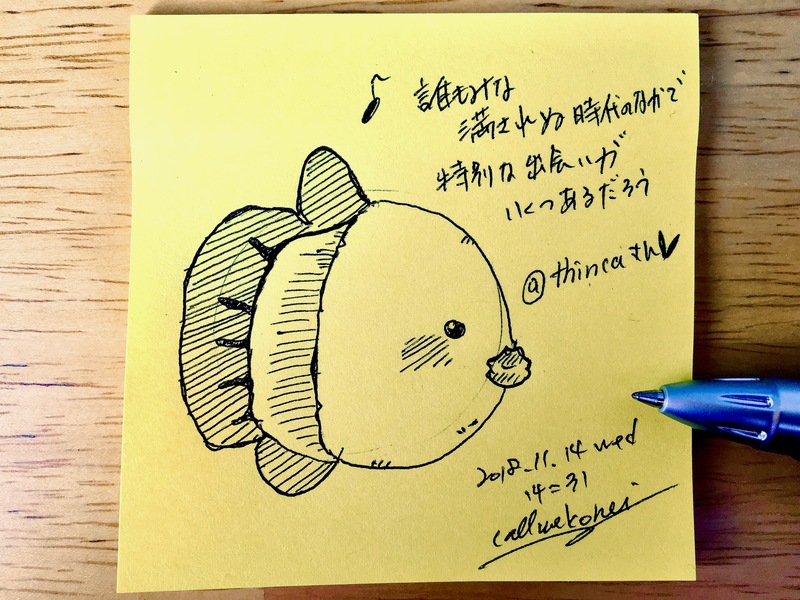 誰もみな
満されぬ時代のなかで
特別な出会いが
いくつあるだろう
@thincaさん♥
2018.11.14 wed
14=31
callmekohei